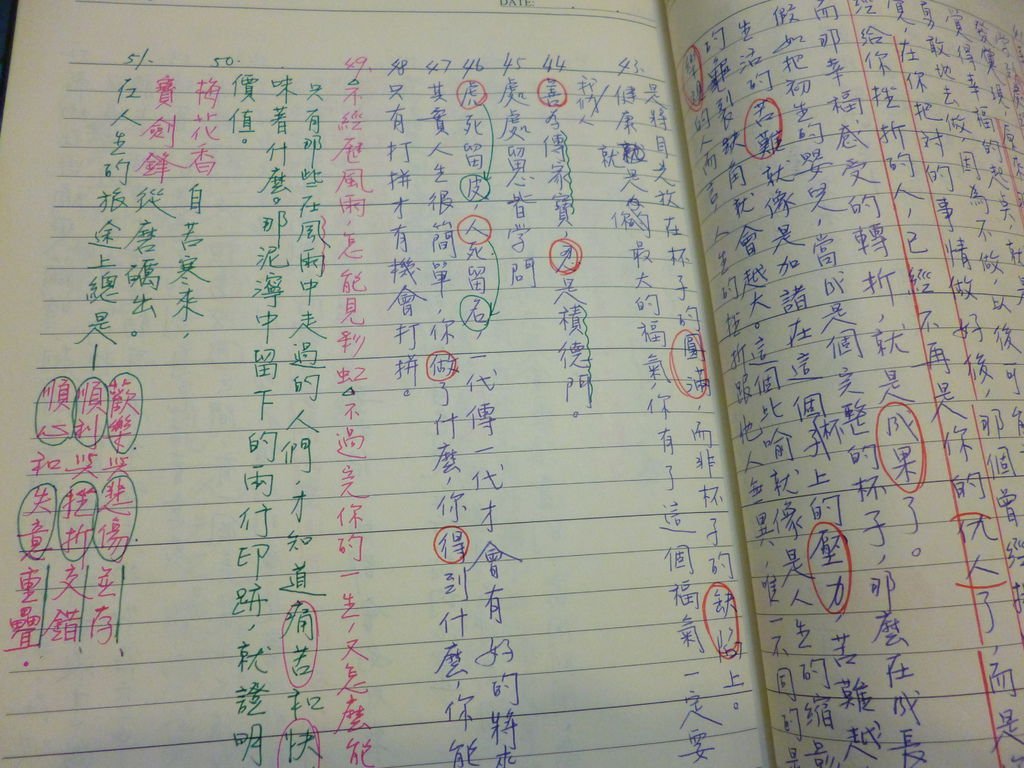 勇敢地去做,因為不做,以後可能
在你把對的事情做好後,那個曾經
經給你挫折的人,已經不再是你的仇人了,而是
而那幸福感受的轉折,就是成果了。
假如把初生的嬰兒,當成是個完整的杯子,那麼在成長
生活的苦難就像是加諸在這個杯子上的壓力,苦難越
的裂缺角就會越大。這個比喻就像是人生的縮影
的人而言人生的挫折跟他人無異,唯一不同的是
是將目光放在杯子的圓滿,而非杯子的缺陷上。
43. 健康就是做我們人最大的福氣,你有了這個福氣一定要
44 善為傳家寶,忍是積德門。
45 處處留思皆學問
46 虎死留皮人死留名,一代傳一代才會有好的將來
47 其實人生很簡單,你做了什麼,你得到什麼,你能
48 只有打拼才有機會打拼。
49. 不經歷風雨,怎能見彩虹。不過完你的一生,又怎麼能
只有那些在風雨中走過的人們,才知道痛苦和快
味着什麼。那泥濘中留下的兩行印跡,就證明
價值。
50. 梅花香自苦寒來,
寶劍鋒從磨礪出。
51. 在人生的旅途上總是—
歡樂與悲傷並存,
順利與挫折交錯,
順心和失意重疊。